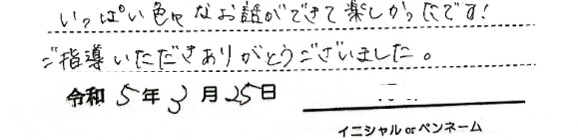 いっぱい色々なお話ができて楽しかったです!
ご指導いただきありがとうございました。
令和5年3月25日
イニシャルorペンネーム